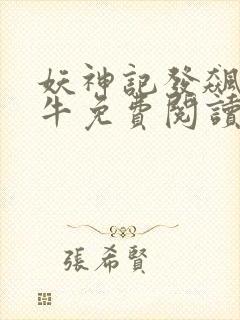 妖神記發飆
牛免費閱讀
張希賢